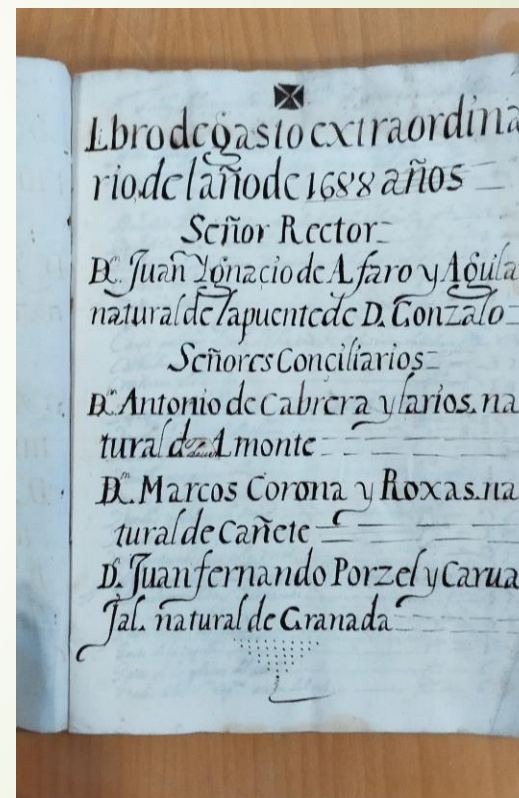 Libro de gasto extraordina
rio, del año de 1688 años
Señor Rector
D.ⁿ Juan Ygnacio de Alfaro y Aguila
natural de la puente de D. Gonzalo
Señores Conciliarios
D.ⁿ Antonio de Cabrera y larios. na
tural de Almonte
D.ⁿ Marcos Corona y Roxas. na
tural de Cañete
D.ⁿ Juan fernando Porzel y Carua
Jal. natural de Granada